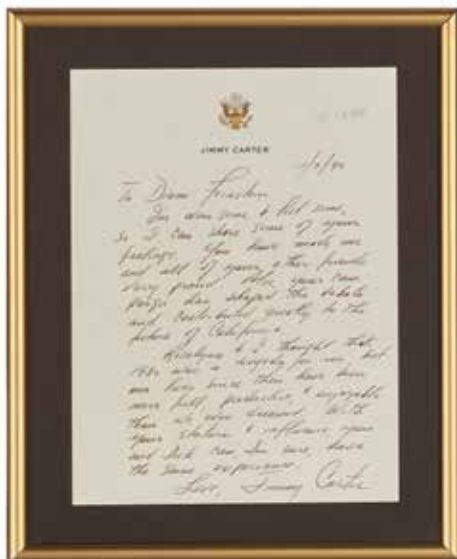 JIMMY CARTER
To Diane Feinstein
I've won some & lost some,
so I can share some of your
feelings. You have made me
and all of your other friends
very proud. your cam-
paign has shaped the debate
and contributed greatly to the
future of California.
Rosalynn & I thought that
1980 was a tragedy for us, but
our lives since then have been
more full, productive, & enjoyable
than we ever dreamed. With
your stature & influence you
and Dick can, I'm sure, have
the same experience.
Love, Jimmy Carter